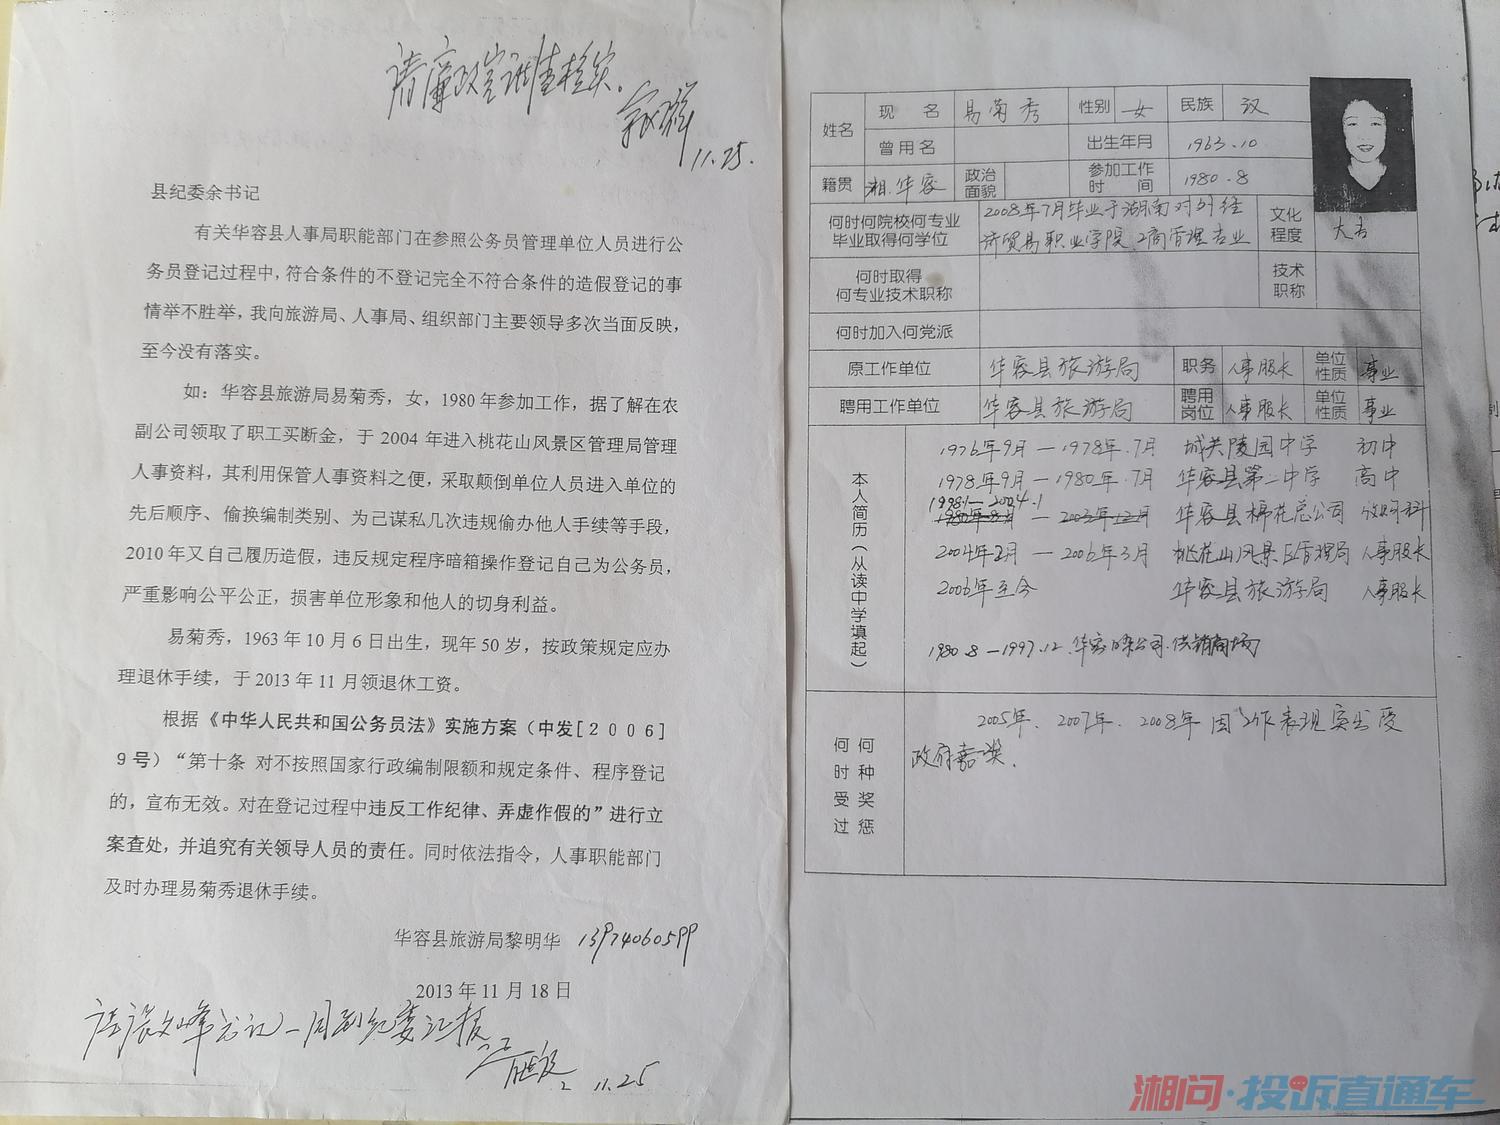 请廉政室调查核实。
11.25.
县纪委余书记
有关华容县人事局职能部门在参照公务员管理单位人员进行公
务员登记过程中，符合条件的不登记完全不符合条件的造假登记的事
情举不胜举，我向旅游局、人事局、组织部门主要领导多次当面反映，
至今没有落实。
如：华容县旅游局易菊秀，女，1980年参加工作，据了解在农
副公司领取了职工买断金，于2004年进入桃花山风景区管理局管理
人事资料，其利用保管人事资料之便，采取颠倒单位人员进入单位的
先后顺序、偷换编制类别、为己谋私几次违规偷办他人手续等手段，
2010年又自己履历造假，违反规定程序暗箱操作登记自己为公务员，
严重影响公平公正，损害单位形象和他人的切身利益。
易菊秀，1963年10月6日出生，现年50岁，按政策规定应办
理退休手续，于2013年11月领退休工资。
根据《中华人民共和国公务员法》实施方案（中发[2006]
9号）“第十条 对不按照国家行政编制限额和规定条件、程序登记
的，宣布无效。对在登记过程中违反工作纪律、弄虚作假的”进行立
案查处，并追究有关领导人员的责任。同时依法指令，人事职能部门
及时办理易菊秀退休手续。
华容县旅游局黎明华 13974060599
2013年11月18日
请张文峰书记一同到纪委汇报
11.25
姓名 现名 易菊秀 性别 女 民族 汉
曾用名 出生年月 1963.10
籍贯 湘.华容 政治面貌 参加工作时间 1980.8
何时何院校何专业毕业取得何学位 2008年7月毕业于湖南对外经
济贸易职业学院.工商管理专业 文化程度 大专
何时取得何专业技术职称 技术职称
何时加入何党派
原工作单位 华容县旅游局 职务 人事股长 单位性质 事业
聘用工作单位 华容县旅游局 聘用岗位 人事股长 单位性质 事业
本人简历（从读中学填起）
1976年9月—1978年.7月 城关陵园中学 初中
1978年9月—1980年.7月 华容县第二中学 高中
1998.1—2004.1
1980年8月—2003年12月 华容县棉花总公司 收购科
2004年2月—2006年3月 桃花山风景区管理局 人事股长
2006年至今 华容县旅游局 人事股长
1980.8—1997.12.华容棉公司.供销商场
何时何种受奖过惩
2005年、2007年、2008年因工作表现突出受
政府嘉奖.
湘问·投诉直通车